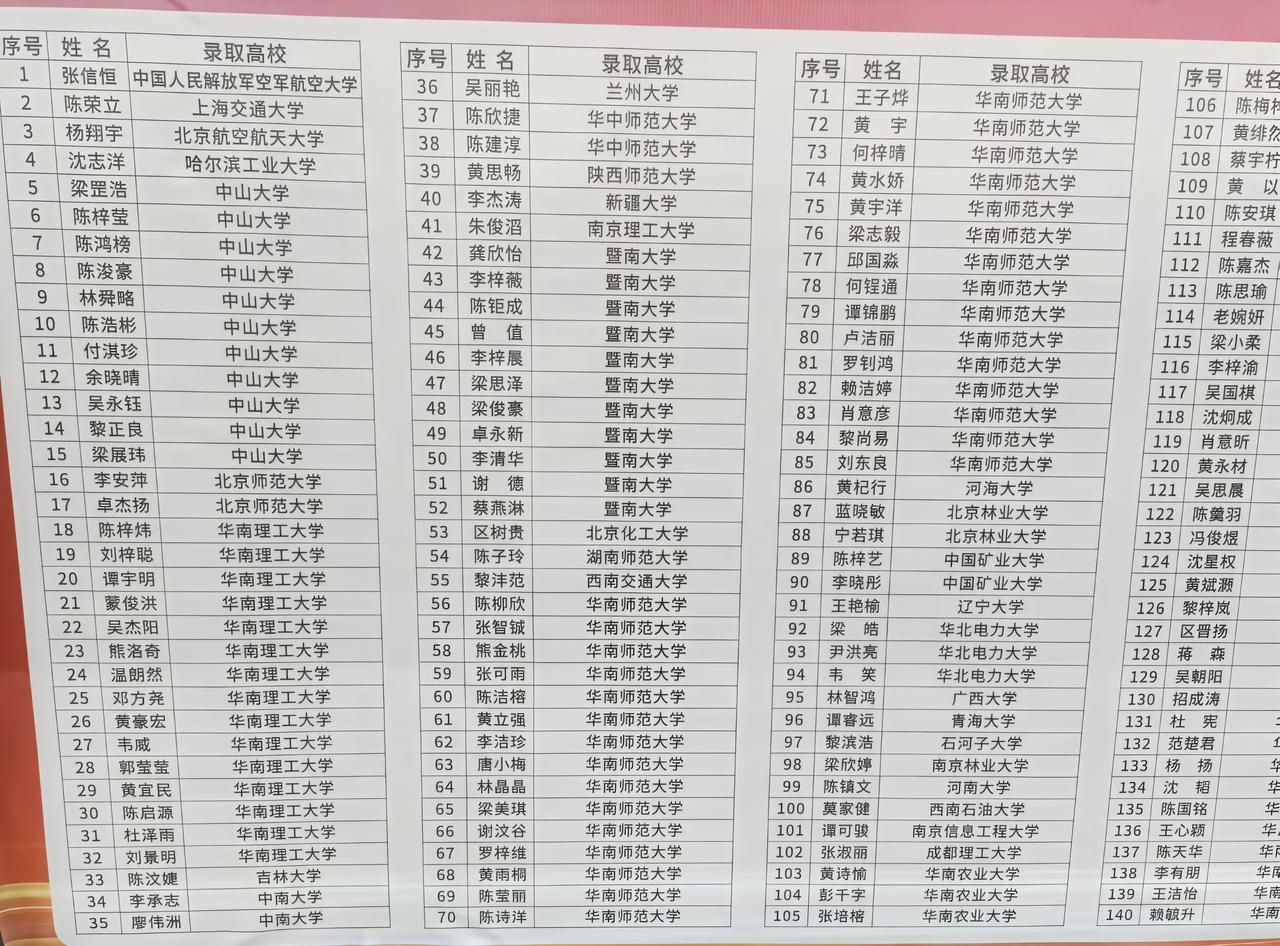 序号 姓 名 录取高校
1 张信恒 中国人民解放军空军航空大学
2 陈荣立 上海交通大学
3 杨翔宇 北京航空航天大学
4 沈志洋 哈尔滨工业大学
5 梁罡浩 中山大学
6 陈梓莹 中山大学
7 陈鸿榜 中山大学
8 陈浚豪 中山大学
9 林舜略 中山大学
10 陈浩彬 中山大学
11 付淇珍 中山大学
12 余晓晴 中山大学
13 吴永钰 中山大学
14 黎正良 中山大学
15 梁展玮 中山大学
16 李安萍 北京师范大学
17 卓杰扬 北京师范大学
18 陈梓炜 华南理工大学
19 刘梓聪 华南理工大学
20 谭宇明 华南理工大学
21 蒙俊洪 华南理工大学
22 吴杰阳 华南理工大学
23 熊洛奇 华南理工大学
24 温朗然 华南理工大学
25 邓方尧 华南理工大学
26 黄豪宏 华南理工大学
27 韦威 华南理工大学
28 郭莹莹 华南理工大学
29 黄宜民 华南理工大学
30 陈启源 华南理工大学
31 杜泽雨 华南理工大学
32 刘景明 华南理工大学
33 陈汶婕 吉林大学
34 李承志 中南大学
35 廖伟洲 中南大学
序号 姓 名 录取高校
36 吴丽艳 兰州大学
37 陈欣捷 华中师范大学
38 陈建淳 华中师范大学
39 黄思畅 陕西师范大学
40 李杰涛 新疆大学
41 朱俊滔 南京理工大学
42 龚欣怡 暨南大学
43 李梓薇 暨南大学
44 陈钜成 暨南大学
45 曾 值 暨南大学
46 李梓晨 暨南大学
47 梁思泽 暨南大学
48 梁俊豪 暨南大学
49 卓永新 暨南大学
50 李清华 暨南大学
51 谢 德 暨南大学
52 蔡燕淋 暨南大学
53 区树贵 北京化工大学
54 陈子玲 湖南师范大学
55 黎沣范 西南交通大学
56 陈柳欣 华南师范大学
57 张智铖 华南师范大学
58 熊金桃 华南师范大学
59 张可雨 华南师范大学
60 陈洁榕 华南师范大学
61 黄立强 华南师范大学
62 李洁珍 华南师范大学
63 唐小梅 华南师范大学
64 林晶晶 华南师范大学
65 梁美琪 华南师范大学
66 谢汶谷 华南师范大学
67 罗梓维 华南师范大学
68 黄雨桐 华南师范大学
69 陈莹丽 华南师范大学
70 陈诗洋 华南师范大学
序号 姓名 录取高校
71 王子烨 华南师范大学
72 黄 宇 华南师范大学
73 何梓晴 华南师范大学
74 黄水娇 华南师范大学
75 黄宇洋 华南师范大学
76 梁志毅 华南师范大学
77 邱国淼 华南师范大学
78 何锃通 华南师范大学
79 谭锦鹏 华南师范大学
80 卢洁丽 华南师范大学
81 罗钊鸿 华南师范大学
82 赖洁婷 华南师范大学
83 肖意彦 华南师范大学
84 黎尚易 华南师范大学
85 刘东良 华南师范大学
86 黄杞行 河海大学
87 蓝晓敏 北京林业大学
88 宁若琪 北京林业大学
89 陈梓艺 中国矿业大学
90 李晓彤 中国矿业大学
91 王艳榆 辽宁大学
92 梁 皓 华北电力大学
93 尹洪亮 华北电力大学
94 韦 笑 华北电力大学
95 林智鸿 广西大学
96 谭睿远 青海大学
97 黎滨浩 石河子大学
98 梁欣婷 南京林业大学
99 陈镇文 河南大学
100 莫家健 西南石油大学
101 谭可骏 南京信息工程大学
102 张淑丽 成都理工大学
103 黄诗愉 华南农业大学
104 彭千字 华南农业大学
105 张培榕 华南农业大学
序号 姓名
106 陈梅
107 黄绯然
108 蔡宇柠
109 黄 以
110 陈安琪
111 程春薇
112 陈嘉杰
113 陈思瑜
114 老婉妍
115 梁小柔
116 李梓渝
117 吴国棋
118 沈炯成
119 肖意昕
120 黄永材
121 吴思晨
122 陈羹羽
123 冯俊煜
124 沈星权
125 黄斌灏
126 黎梓岚
127 区晋扬
128 蒋 森
129 吴朝阳
130 招成涛
131 杜 宪
132 范楚君
133 杨 扬 华
134 沈 韬 华
135 陈国铭 华
136 王心颖 华
137 陈天华 华南
138 李有朋 华南
139 王洁怡 华南
140 赖毓升 华南